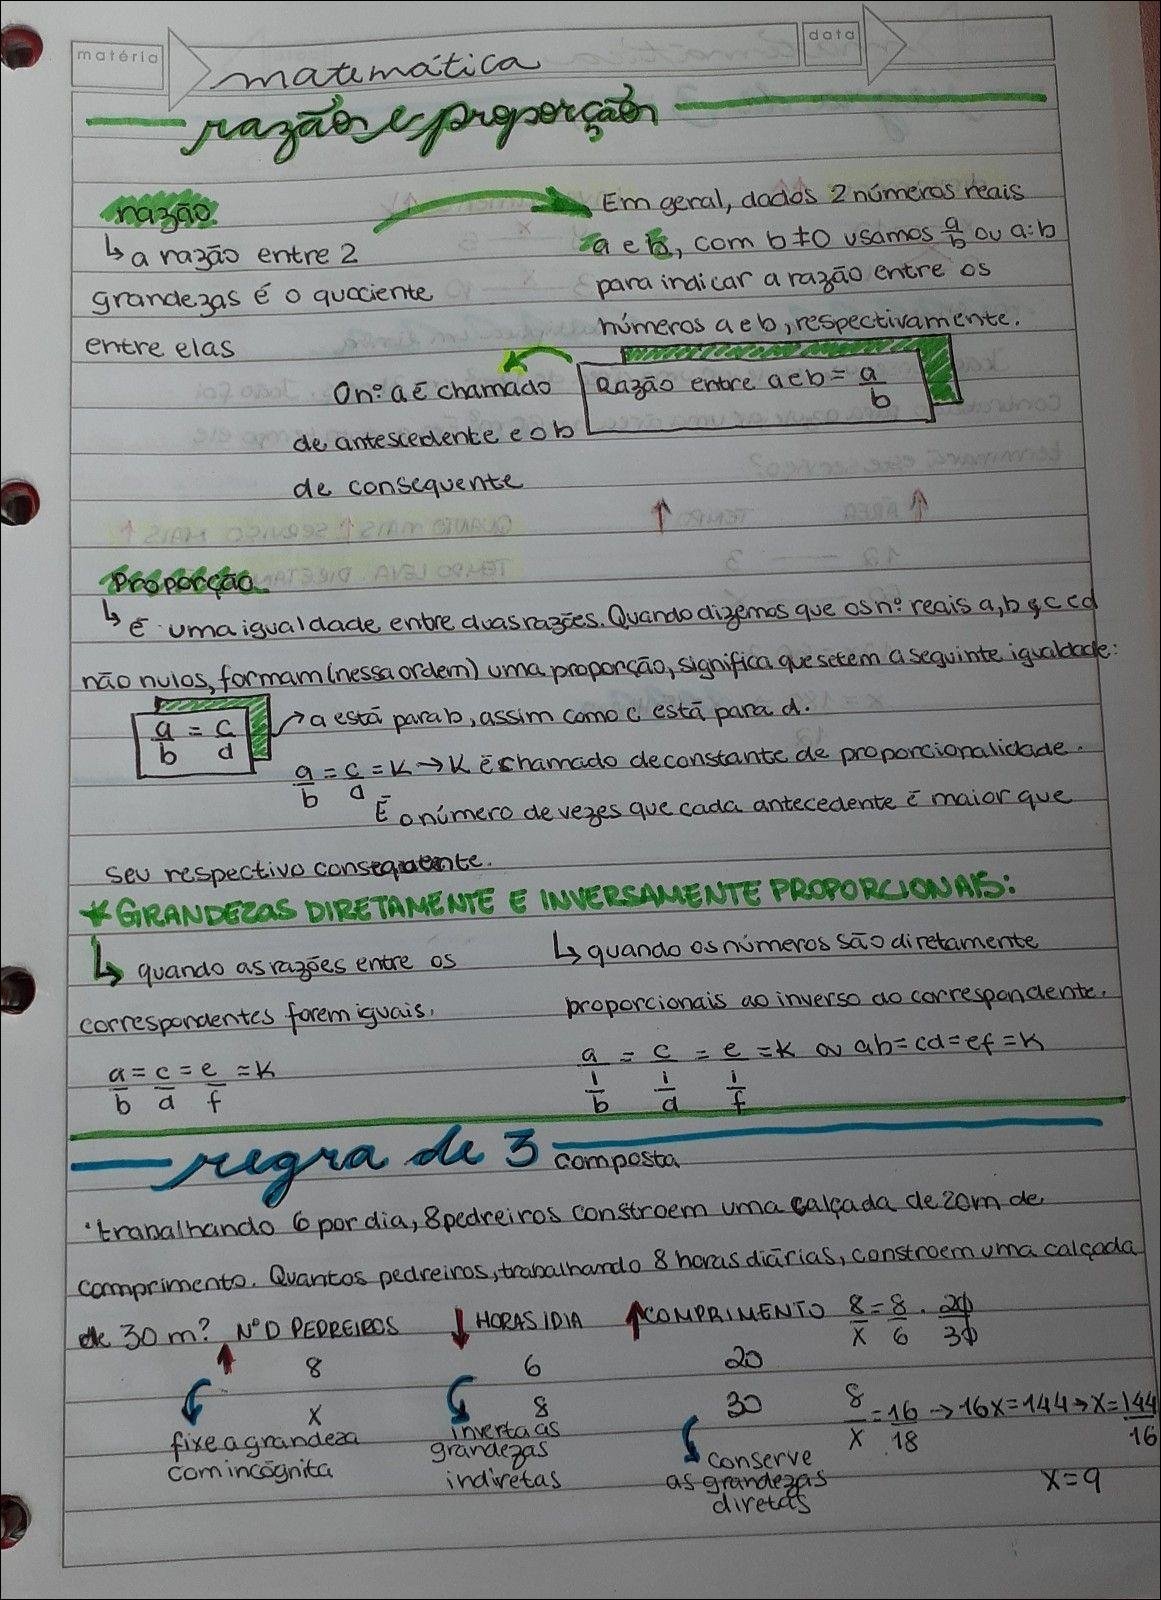 matéria
matemática
data
razão e proporção
razão
↳ a razão entre 2
grandezas é o quociente
entre elas
Em geral, dados 2 números reais
a e b, com b≠0 usamos a/b ou a:b
para indicar a razão entre os
números a e b, respectivamente.
Razão entre a e b = a/b
O nº a é chamado
de antescedente e o b
de consequente
Proporção
↳ é uma igualdade entre duas razões. Quando dizemos que os nº reais a, b, c e d
não nulos, formam (nessa ordem) uma proporção, significa que se tem a seguinte igualdade:
a/b = c/d
→ a está para b, assim como c está para d.
a/b = c/d = K → K é chamado de constante de proporcionalidade.
É o número de vezes que cada antecedente é maior que
seu respectivo consequente.
* GRANDEZAS DIRETAMENTE E INVERSAMENTE PROPORCIONAIS:
↳ quando as razões entre os
correspondentes forem iguais.
a/b = c/d = e/f = K
↳ quando os números são diretamente
proporcionais ao inverso do correspondente.
a/(1/b) = c/(1/d) = e/(1/f) = K ou ab = cd = ef = K
regra de 3 composta
· trabalhando 6 por dia, 8 pedreiros constroem uma calçada de 20m de
comprimento. Quantos pedreiros, trabalhando 8 horas diárias, constroem uma calçada
de 30 m?
Nº D PEDREIROS ↓ HORAS/DIA ↑ COMPRIMENTO
↑ 8 6 20
x 8 30
fixe a grandeza
com incógnita
inverta as
grandezas
indiretas
conserve
as grandezas
diretas
8/x = 8/6 . 20/30
8/x = 16/18 → 16x = 144 → x = 144/16
x = 9